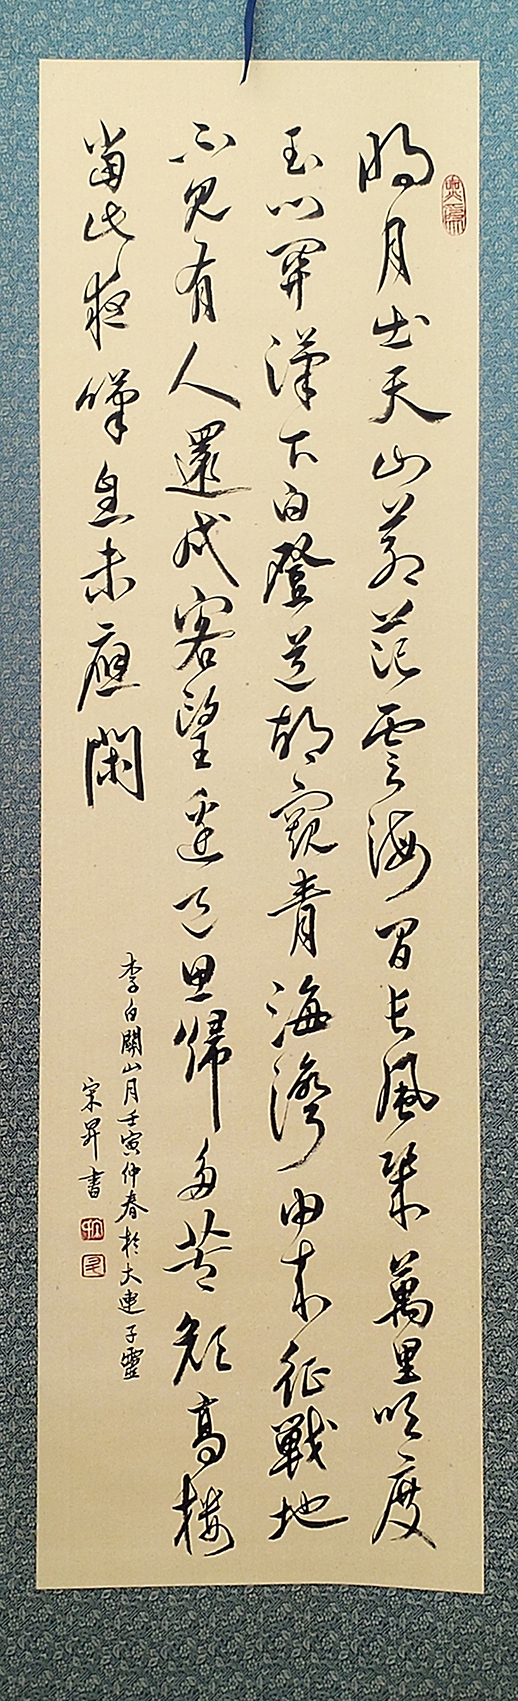 明月出天山蒼茫雲海間長風幾萬里吹度
玉門關漢下白登道胡窺青海灣由來征戰地
不見有人還戍客望邊邑思歸多苦顏高樓
當此夜嘆息未應閑
李白關山月壬寅仲春於大連子靈
宋昇書